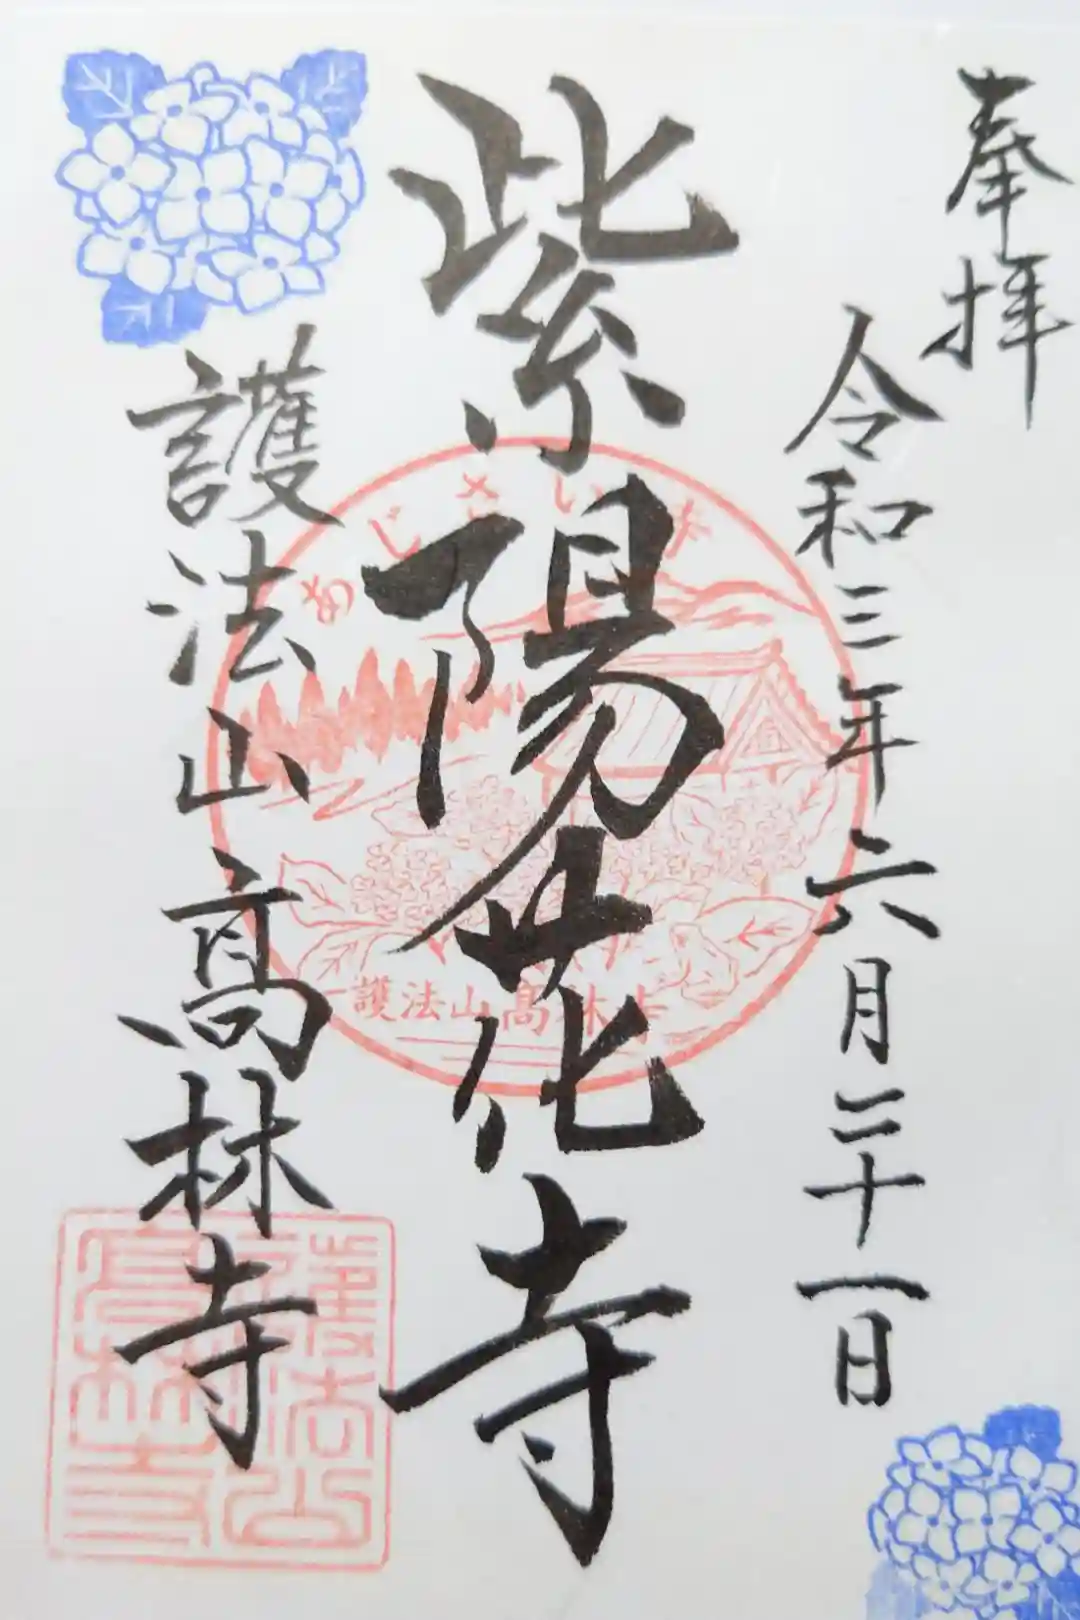 奉拝
令和三年六月二十一日
紫陽花寺
護法山高林寺
あじさい寺
護法山高林寺
護法山高林寺